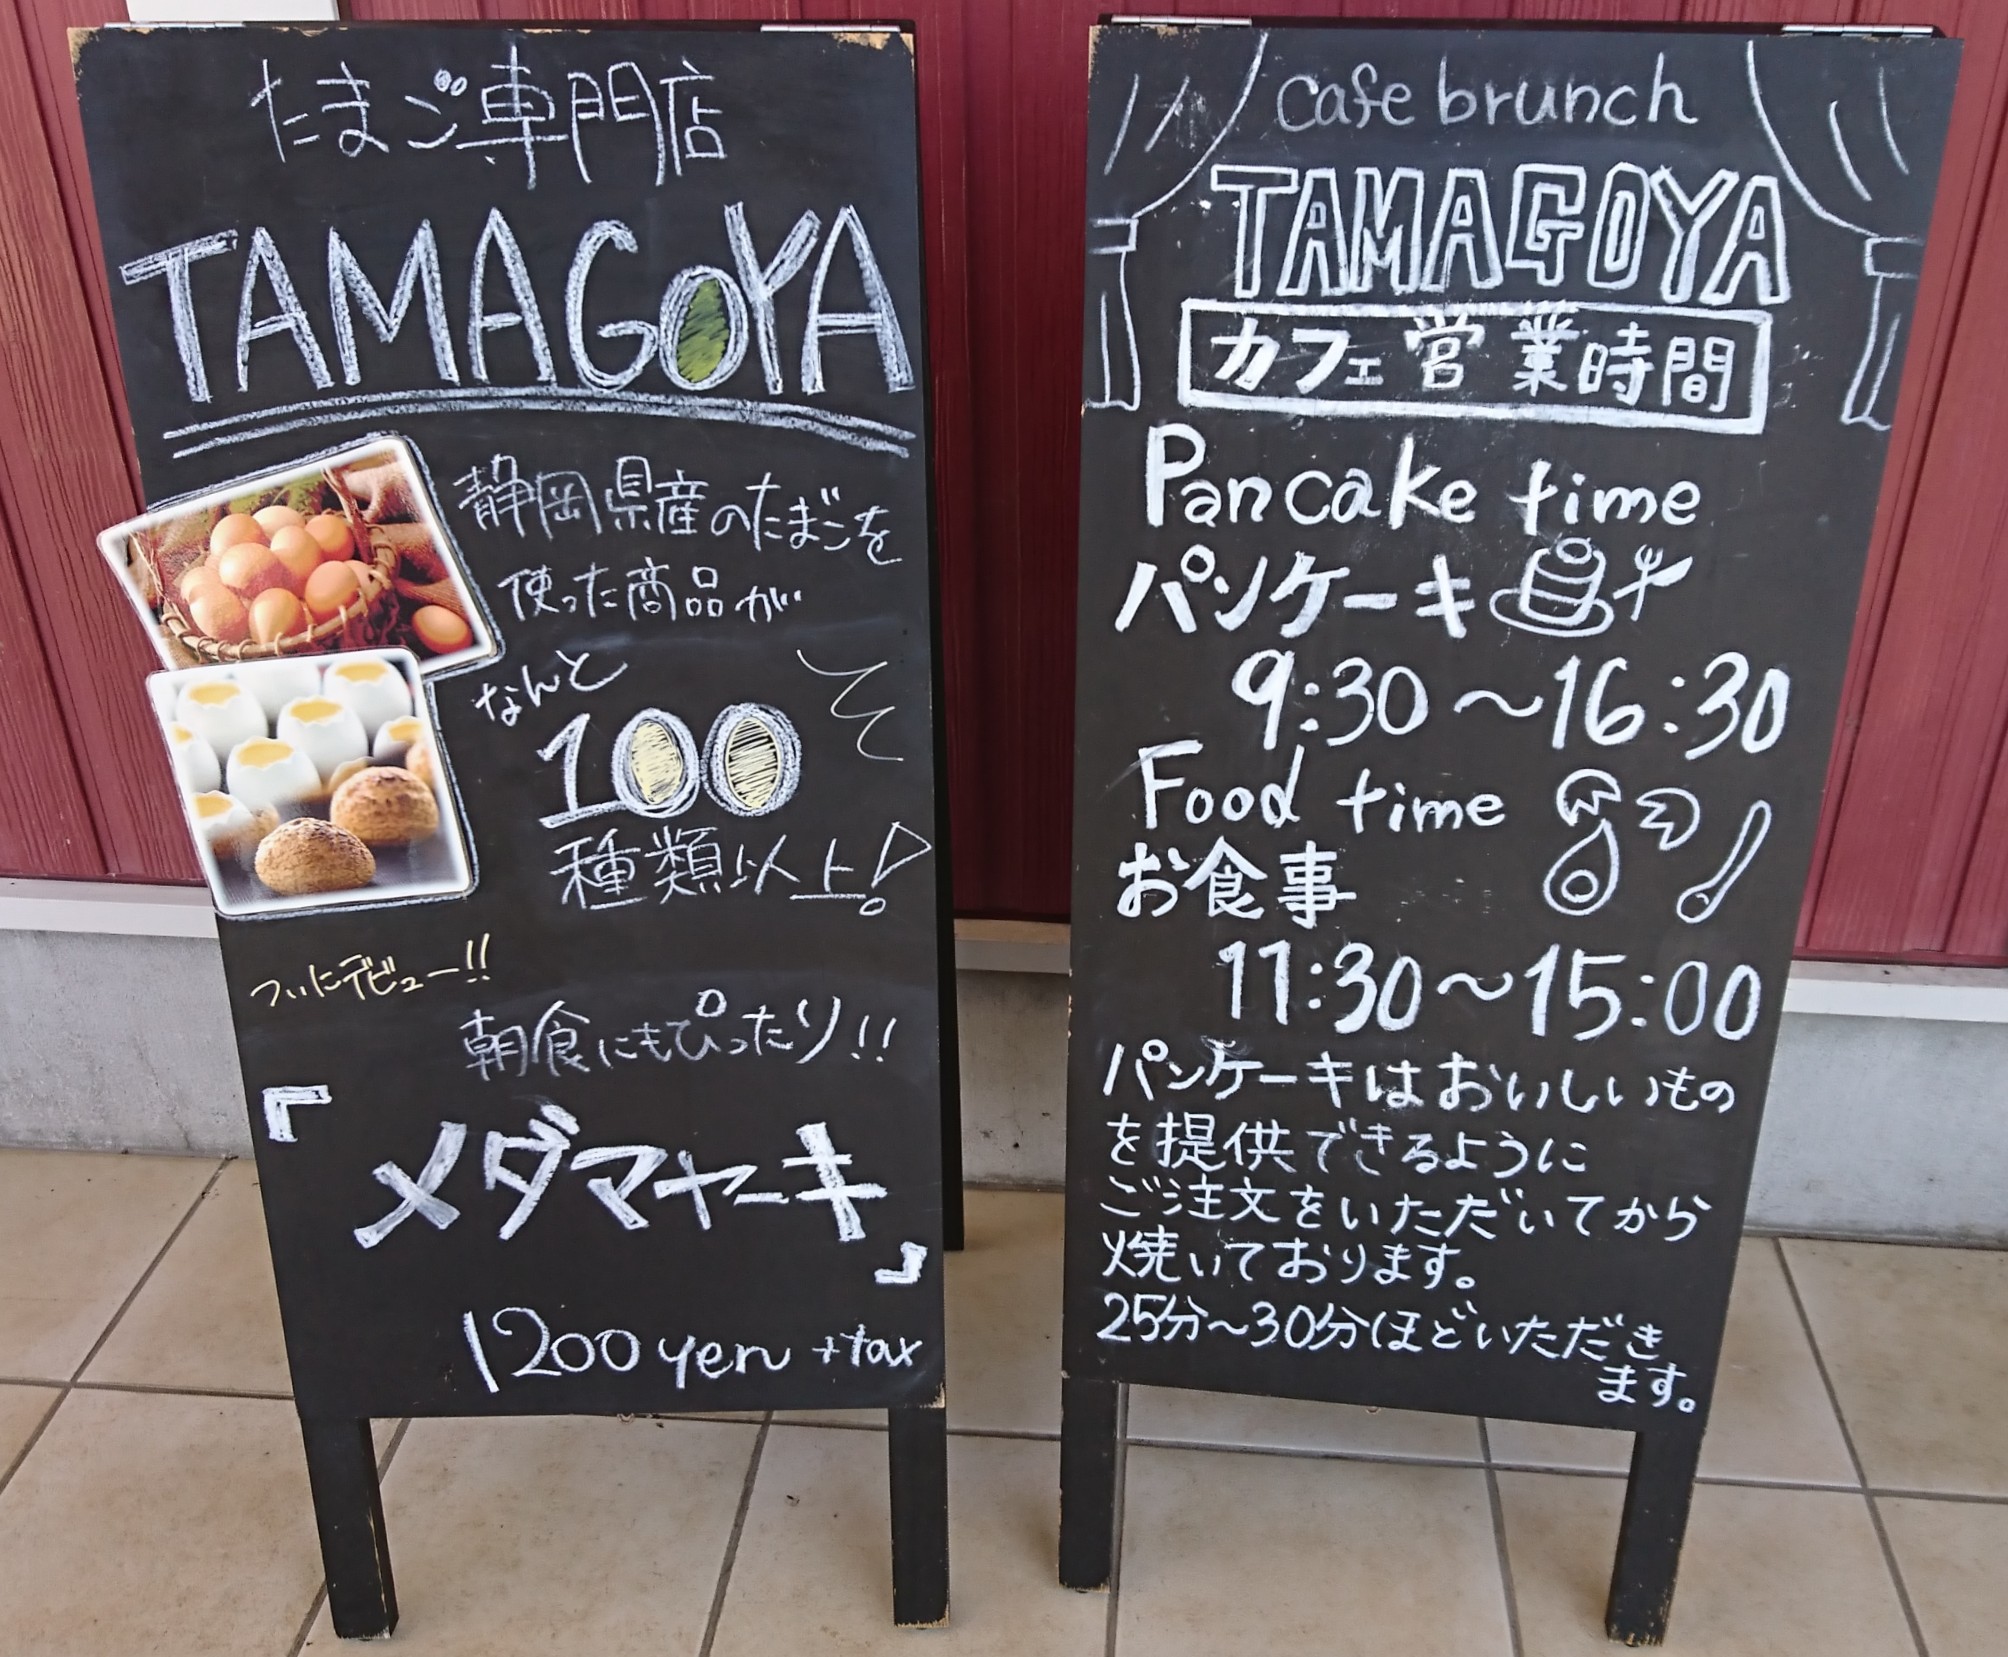 たまご専門店
TAMAGOYA
静岡県産のたまごを
使った商品が
なんと
100
種類以上!
ついにデビュー!!
朝食にもぴったり!!
『メダマヤーキ』
1200 yen +tax
cafe brunch
TAMAGOYA
カフェ営業時間
Pancake time
パンケーキ
9:30〜16:30
Food time
お食事
11:30〜15:00
パンケーキはおいしいもの
を提供できるように
ご注文をいただいてから
焼いております。
25分〜30分ほどいただき
ます。